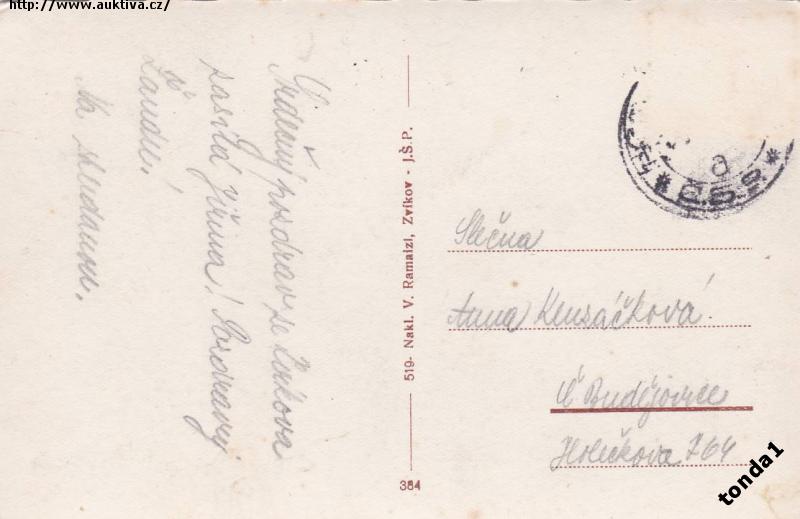 http://www.auktiva.cz/
Srdečný pozdrav ze Zvíkova
zasílá Jiřina! Pozdravy
Na shledanou.
519- Nakl. V. Ramaizl, Zvíkov - J.Š.P.
384
Č.S.P.
a
Slečna
Anna
Č Budějovice
Holečkova 764
tonda1